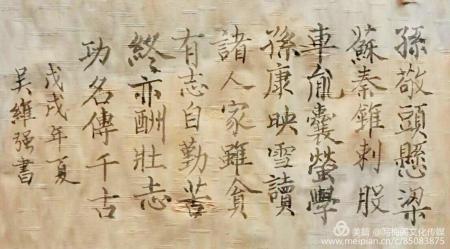 孫敬頭懸梁
蘇秦錐刺股
車胤囊螢學
孫康映雪讀
諸人家雖貧
有志自勤苦
終亦酬壯志
功名傳千古
戊戌年夏
吴維强書
美篇 @写梅阁文化传媒
www.meipian.cn/c/85083875